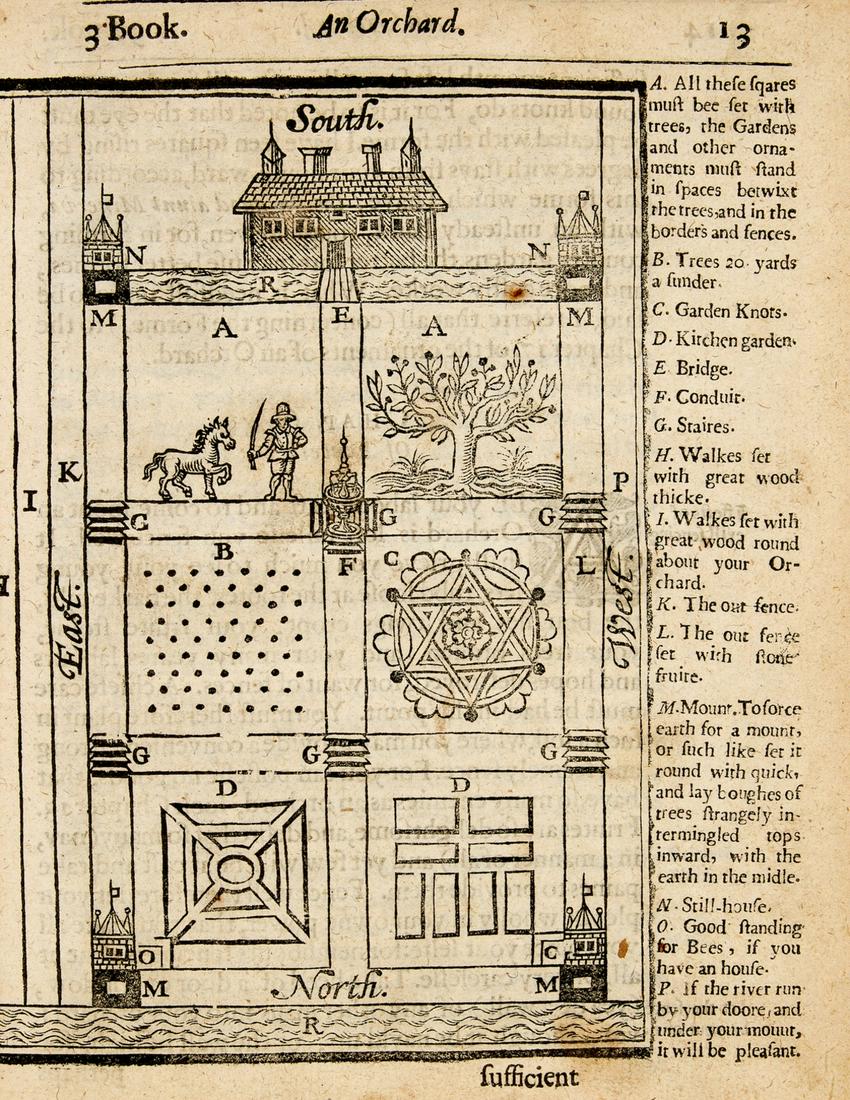 3 Book.
An Orchard.
13
South.
N
N
R
M
A
E
A
M
K
P
I
G
G
G
B
F
C
L
East.
West.
H
G
G
G
D
D
O
C
M
North.
M
R
A. All theſe ſqares
muſt bee ſet with
trees, the Gardens
and other orna-
ments muſt ſtand
in ſpaces betwixt
the trees, and in the
borders and fences.
B. Trees 20 yards
a ſunder.
C. Garden Knots.
D. Kitchen garden.
E. Bridge.
F. Conduit.
G. Staires.
H. Walkes ſet
with great wood
thicke.
I. Walkes ſet with
great wood round
about your Or-
chard.
K. The out fence.
L. The out fence
ſet with ſtone
fruite.
M. Mount. To force
earth for a mount,
or ſuch like ſet it
round with quick,
and lay boughes of
trees ſtrangely in-
termingled tops
inward, with the
earth in the midle.
N. Still-houſe.
O. Good ſtanding
for Bees, if you
have an houſe.
P. If the river run
by your doore, and
under your mount,
it will be pleaſant.
ſufficient